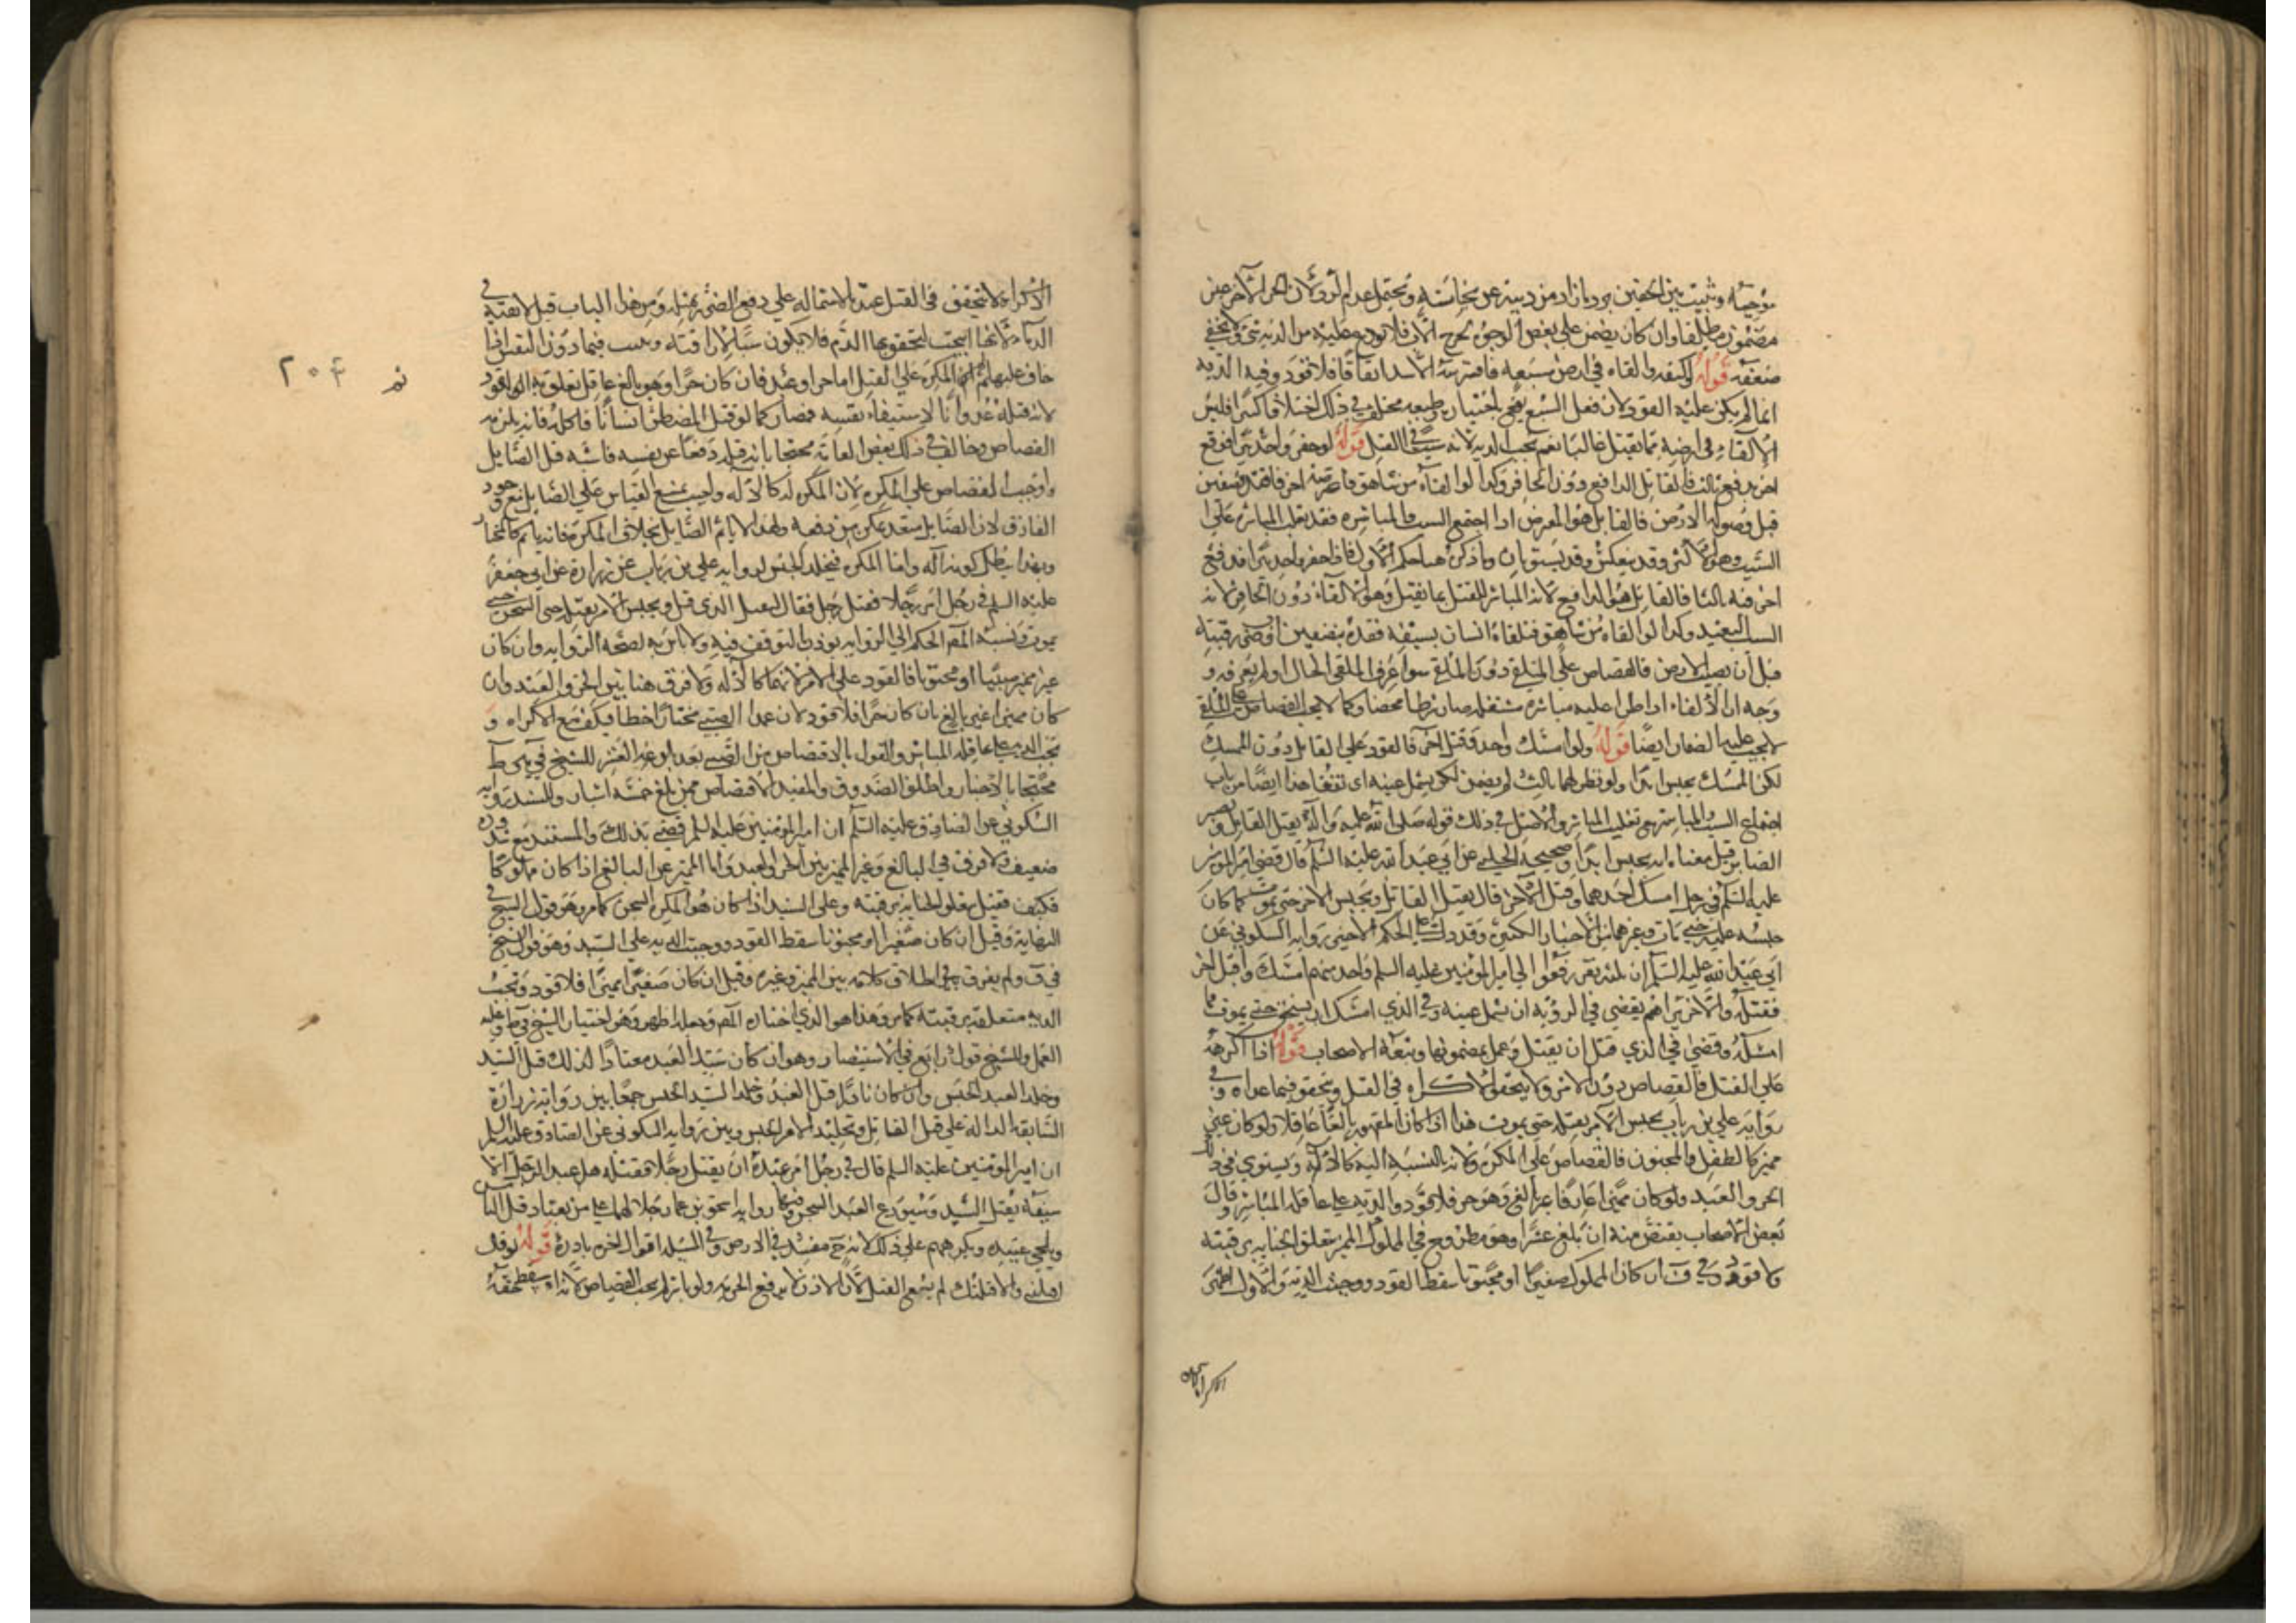 مضمون مطلقا وان كان يضمن على بعض الوجوه لخرج فلا تودع عليه من الدية شيء ولا يخفى
ضعفه قوله لو كتفه والقاه في ارض مسبعة فافترسه الاسد اتفاقا فلا قود وفيه الدية
انما لم يكن عليه القود لان فعل السبع يقع باختياره وطبعه مختلف في ذلك اختلافا كثيرا فليس
الالقاء في ارضه مما يقتل غالبا نعم يجب الدية لانه سبب في القتل قوله لو حفر واحد بئرا فوقع
اخر بدفع ثالث فالقاتل الدافع دون الحافر وكذا لو القاه من شاهق فاعترضه اخر فقده نصفين
قبل وصوله الارض فالقاتل هو المعترض اذا اجتمع السبب والمباشرة فقد يغلب المباشرة على
السبب وهو الاكثر وقد ينعكس وقد يستويان وما ذكر هنا حكم الاول فاذا حفر واحد بئرا فدفع
اخر فيه ثالثا فالقاتل هو الدافع لانه المباشر للقتل بما يقتل وهو الالقاء دون الحافر لانه
السبب البعيد وكذا لو القاه من شاهق فتلقاه انسان بسيفه فقده نصفين او ضرب رقبته
قبل ان يصل الارض فالقصاص على المتلقي دون الملقي سواء عرف الملقي الحال او لم يعرفه و
وجه ان الالقاء اذا طرا عليه مباشرة مستقلة صار شرطا محضا وكما لا يجب القصاص على الملقي
لا يجب عليه الضمان ايضا قوله ولو امسك واحد وقتل اخر فالقود على القاتل دون الممسك
لكن الممسك يحبس ابدا ولو نظر لهما ثالث لم يضمن لكن يسمل عينه اي تفقا هذا ايضا من باب
اجتماع السبب والمباشر مع تغليب المباشر والاصل في ذلك قوله صلى الله عليه وآله يقتل القاتل ويصبر
الصابر قيل معناه انه يحبس ابدا وصحيحة الحلبي عن ابي عبد الله عليه السلم قال قضى امير المؤمنين
عليه السلم في رجلين امسك احدهما وقتل الآخر قال يقتل القاتل ويحبس الاخر حتى يموت كما كان
حبسه عليه حتى مات وغيرهما من الاخبار الكثيرة وقد دل على الحكم الاخير رواية السكوني عن
ابي عبد الله عليه السلم ان ثلثة نفر رفعوا الى امير المؤمنين عليه السلم واحد منهم امسك واقبل اخر
فقتله والآخر يراهم يقضي في الرؤية ان يسمل عينه وفي الذي امسك ان يسجن حتى يموت كما
امسكه وقضى في الذي قتل ان يقتل وعمل بمضمونها وتبعه الاصحاب قوله اذا اكرهه
على القتل فالقصاص دون الامر ولا يتحقق الاكراه في القتل ويتحقق فيما عداه وفي
رواية علي بن رياب يحبس الامر بقتله حتى يموت هذا اذا كان المقهور بالغا عاقلا ولو كان غير
مميز كالطفل والمجنون فالقصاص على المكره لانه بالنسبة اليه كالآلة ويستوي في ذلك
الحر والعبد ولو كان مميزا عارفا غير بالغ وهو حر فلا قود والدية على عاقلة المباشر وقال
بعض الاصحاب يقتص منه ان بلغ عشرا وهو مطروح وفي المملوك المميز تتعلق الجناية برقبته
ولا قود وفي ف ان كان المملوك صغيرا او مجنونا سقط القود ووجبت الدية والاول اظهر
الاكراه
٢٠٤
الاكراه لا يتحقق في القتل عندنا لاشتماله على دفع الضرر بمثله ومن هذا الباب قيل لا تقية في
الدماء لانها ابيحت لتحقن بها الدم فلا يكون سببا لاراقته وتجب فيما دون النفس اذا
خاف عليها ثم المكره على القتل اما حر او عبد فان كان حرا وهو بالغ عاقل تعلق به القود
لانه قتله عدوانا لاستبقاء نفسه فصار كما لو قتل المضطر انسانا فاكله فانه يلزمه
القصاص وخالف في ذلك بعض العامة محتجا بانه قتله دفعا عن نفسه فاشبه قتل الصايل
واوجب القصاص على المكره لان المكره له كالآلة واجيب بمنع القياس على الصايل مع وجود
الفارق لان الصايل متعد يمكن من دفعه ولهذا لا ياثم الصايل بخلاف المكره فانه ياثم كالمختار
وبهذا يبطل كونه آلة واما المكره فيخلد الحبس لرواية علي بن رياب عن زرارة عن ابي جعفر
عليه السلم في رجل امر رجلا فقتل رجل فقال يقتل الذي قتل ويحبس الامر بقتله في السجن حتى
يموت ونسبة المصر الحكم الى الرواية يوذن بالتوقف فيه ولا باس به لصحة الرواية وان كان
غير مميز صبيا او مجنونا فالقود على الامر لانهما كالآلة ولا فرق هنا بين الحر والعبد وان
كان مميزا غير بالغ فان كان حرا فلا قود لان عمد الصبي مختارا خطا فكيف مع الاكراه و
تجب الدية على عاقلة المباشر والقول بالاقتصاص من الصبي بعد بلوغه العشر للشيخ في يه وط
محتجا بالاخبار واطلق الصدوق والمفيد الاقتصاص ممن بلغ خمسة اشبار والمستند رواية
السكوني عن الصادق عليه السلم ان امير المؤمنين عليه السلم قضى بذلك والمستند مع شذوذه
ضعيف ولا فرق في البالغ وغير المميز بين الحر والعبد واما المميز غير البالغ اذا كان مملوكا
فكيف فقيل يتعلق الجناية برقبته وعلى السيد اذا كان هو المكره السجن كما مر وهو قول الشيخ في
النهاية وقيل ان كان صغيرا او مجنونا سقط القود ووجبت الدية على السيد وهو قول الشيخ
في ف ولم يفرق في اطلاق كلامه بين المميز وغيره وقيل ان كان صغيرا مميزا فلا قود وتجب
الدية متعلقة برقبته كما مر وهذا هو الذي اختاره المصر وجعله اظهر وهو اختيار الشيخ في ط وعليه
العمل وللشيخ قول رابع في الاستبصار وهو ان كان سيد العبد معتادا لذلك قتل السيد
وخلد العبد الحبس وان كان نادرا قتل العبد وخلد السيد الحبس جمعا بين رواية زرارة
السابقة الدالة على قتل القاتل وتخليد الامر الحبس وبين رواية السكوني عن الصادق عليه السلم
ان امير المؤمنين عليه السلم قال في رجل امر عبده ان يقتل رجلا فقتله هل عبد الرجل الا
سيفه يقتل السيد ويستودع العبد السجن ومثلها رواية اسحق بن عمار بحملهما على من يعتاد قتل الناس
ويلجئ عبيده ويكرههم على ذلك لانه ح مفسد في الارض وفي المسئلة اقوال اخر نادرة قوله لو قال
اقتلني والا قتلتك لم يسغ القتل لان الاذن لا يرفع الحرمة ولو باشر لم يجب القصاص لانه اسقط حقه